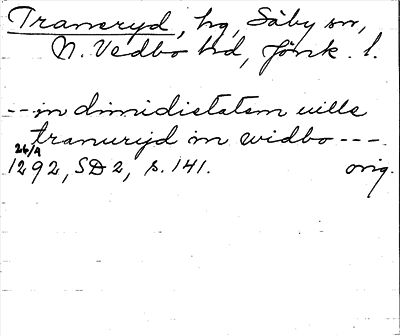 Tranaryd, hg, Säby sn,
N. Vedbo hd, Jönk. l.
--in dimidietatem uille
tranuryd in widbo ---
26/9
1292, SD 2, s. 141. orig.